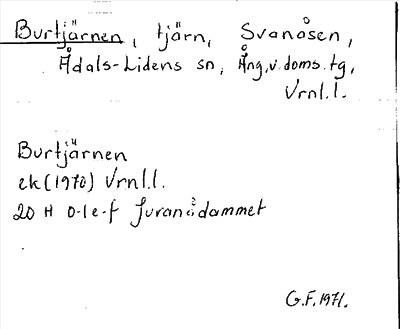 Burtjärnen, tjärn, Svanåsen,
Ådals-Lidens sn, Ång.v.doms.tg,
Vrnl.l.
Burtjärnen
ek(1970) Vrnl.l.
20 H 0-1e-f Juranådammet
G.F.1971.